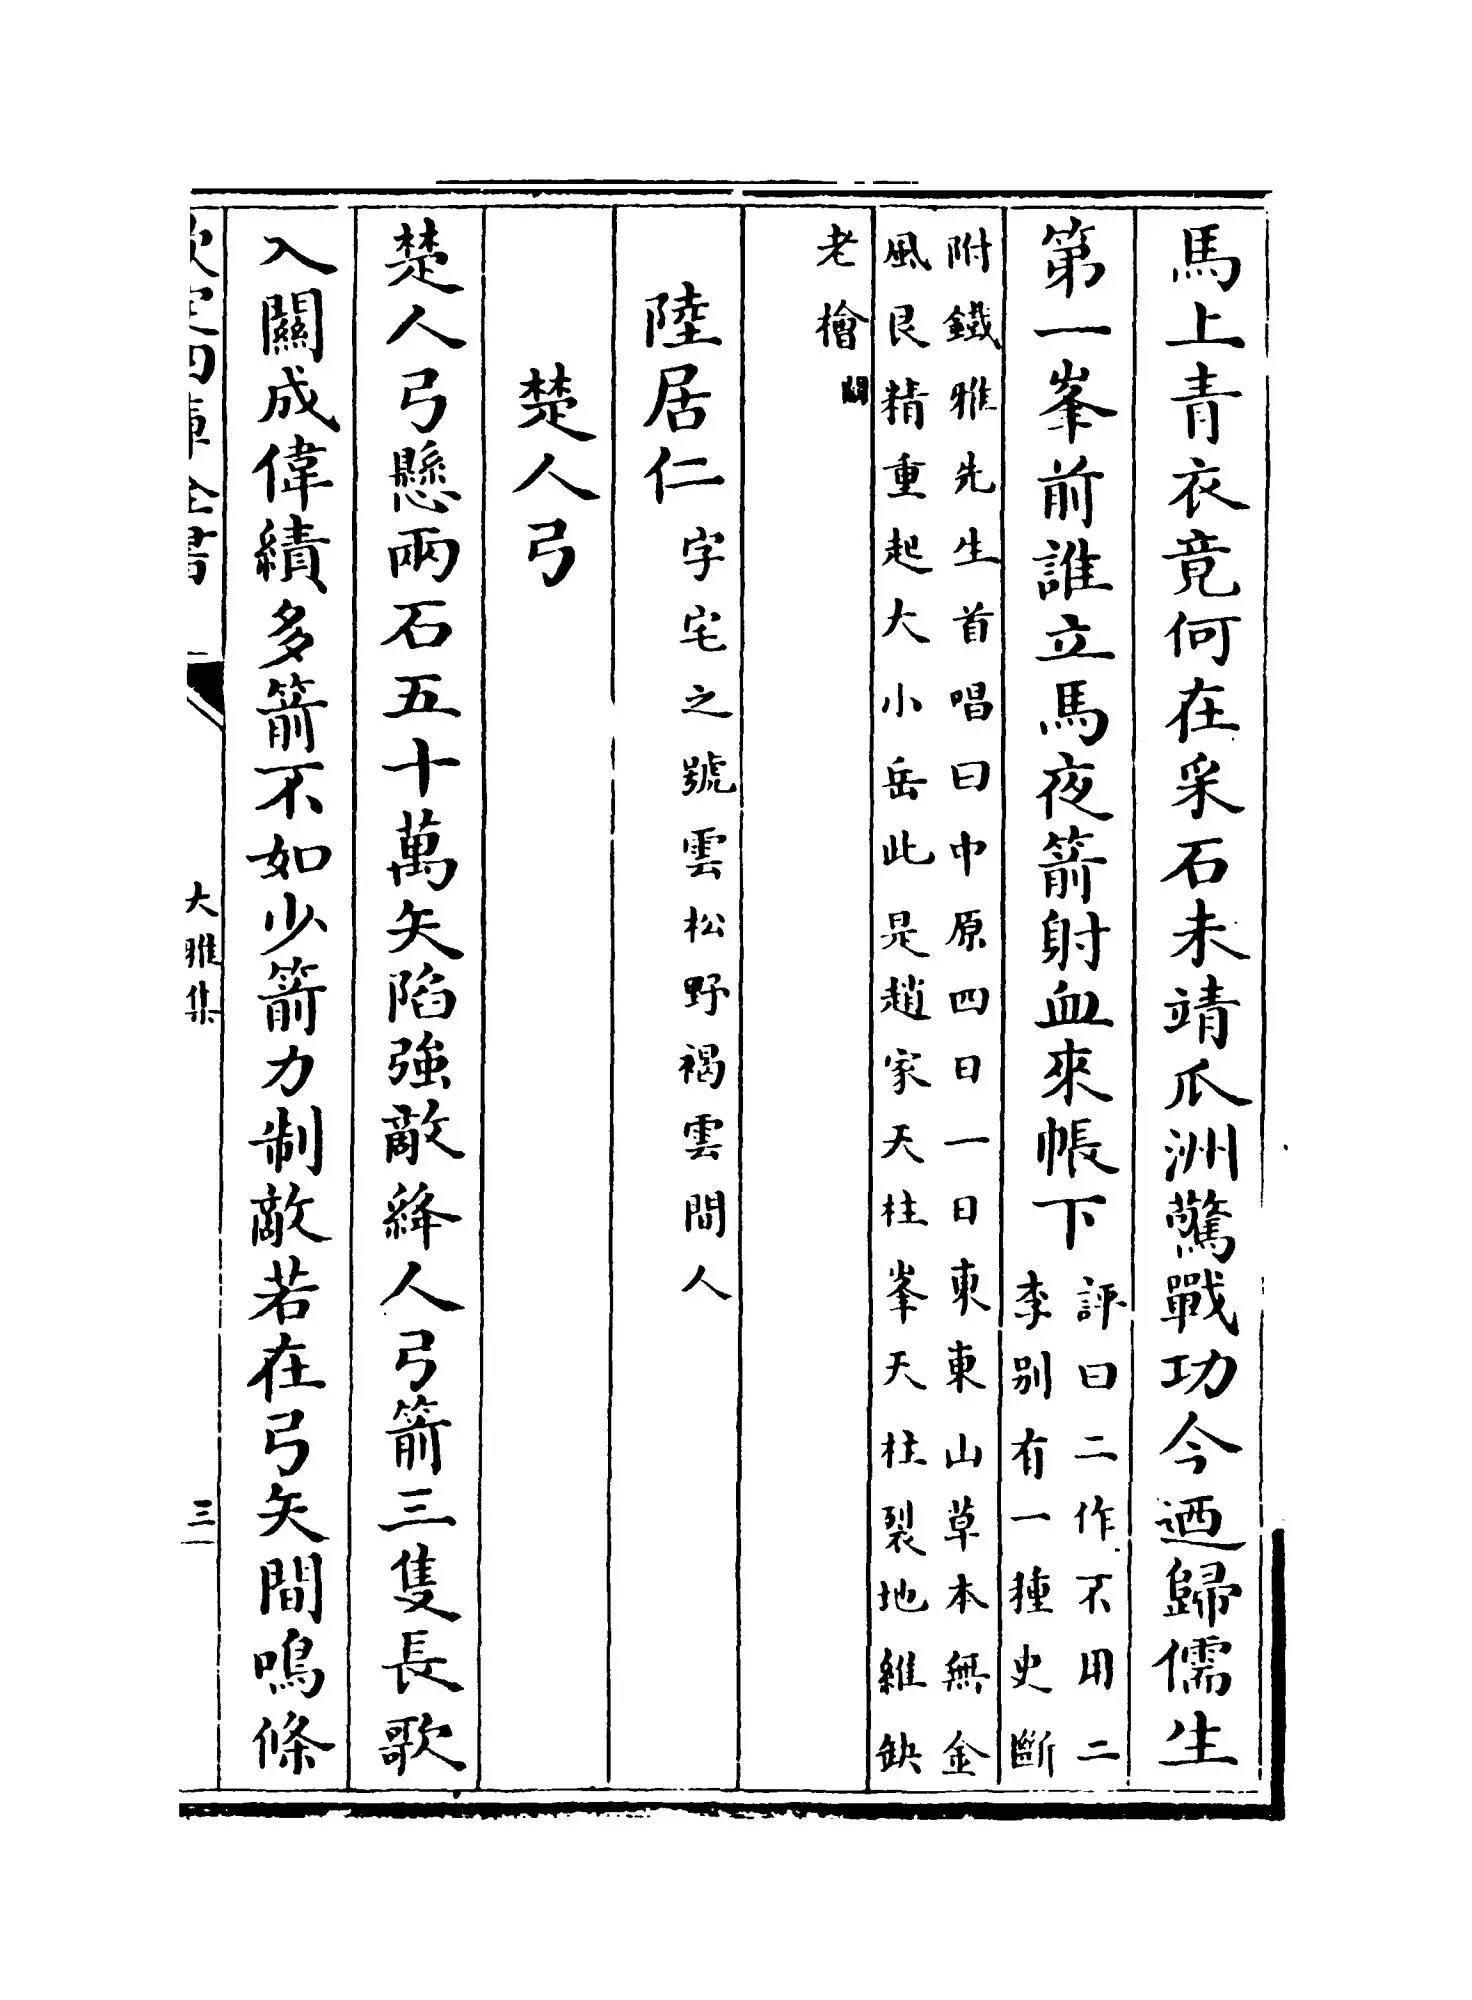 馬上青衣竟何在采石未靖瓜洲驚戰功今迺歸儒生
第一峯前誰立馬夜箭射血來帳下
評曰二作不用二
李别有一種史斷
附鐵雅先生首唱曰中原四日一日東東山草本無金
風艮精重起大小岳此是趙家天柱峯天柱裂地維缺
老檜闕
陸居仁
字宅之號雲松野褐雲間人
楚人弓
楚人弓懸兩石五十萬矢陷強敵絳人弓箭三隻長歌
入關成偉績多箭不如少箭力制敵若在弓矢間鳴條
欽定四庫全書
大雅集
三